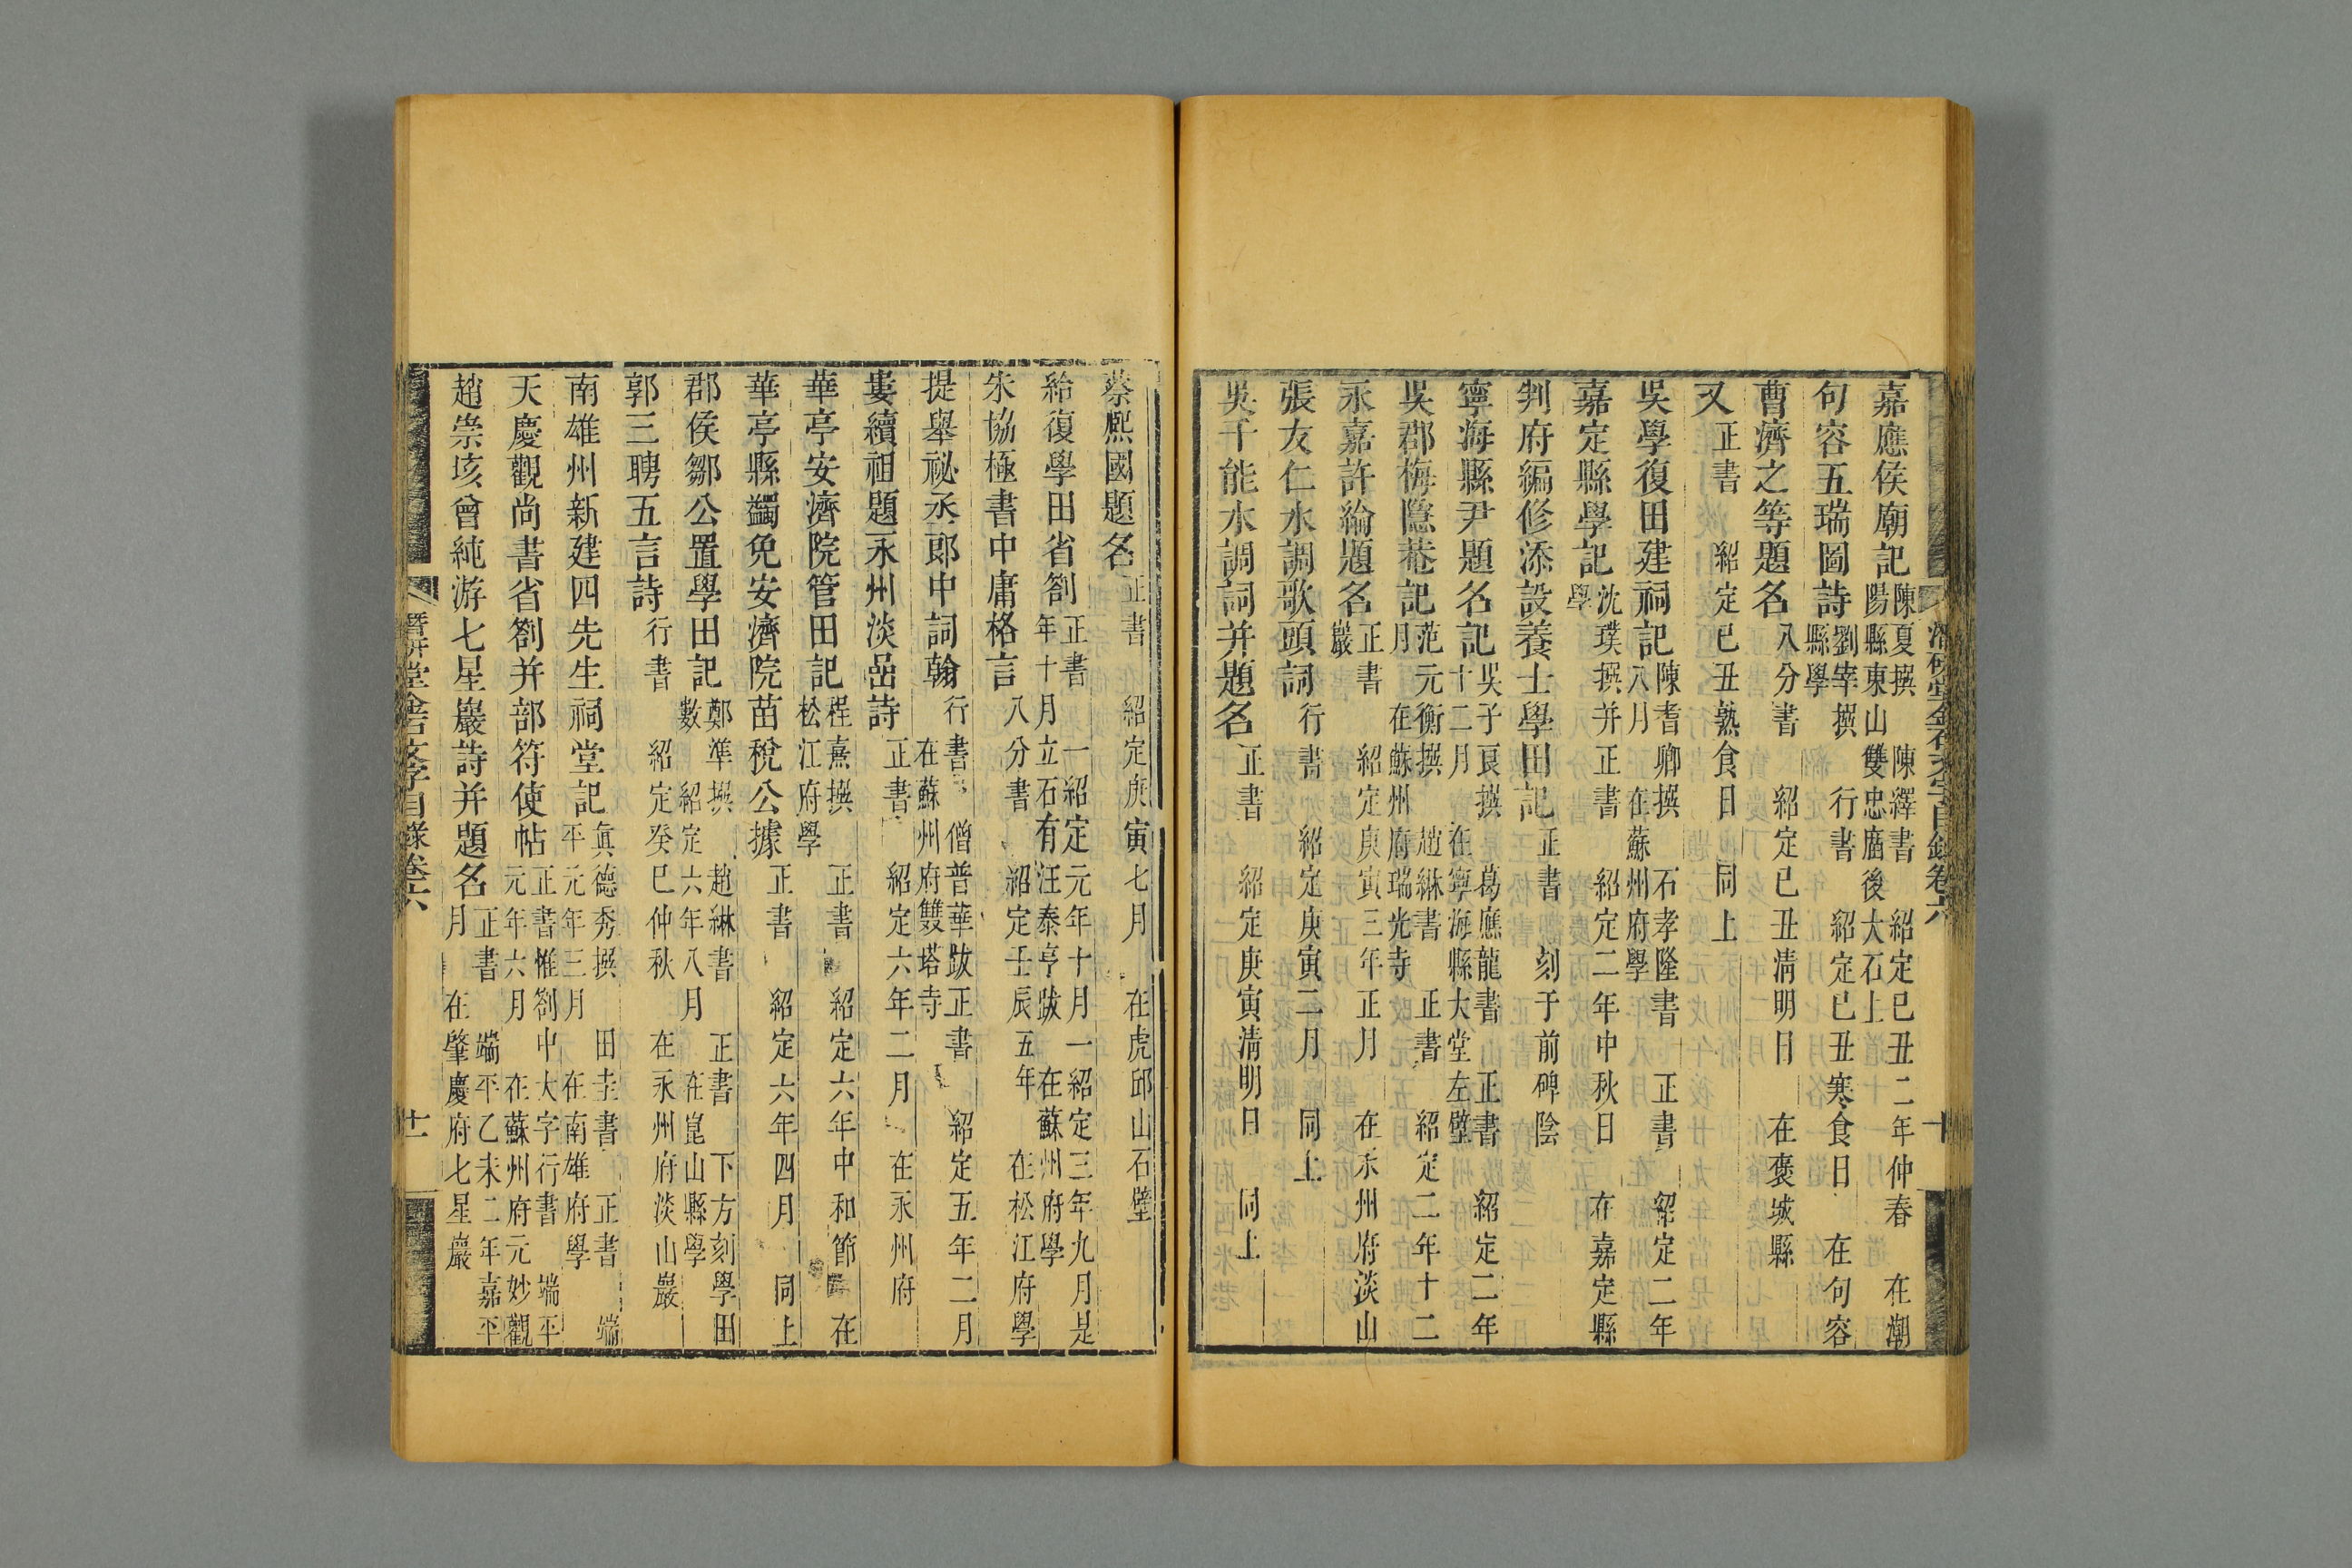 嘉應侯廟記陳夏撰 陳繹書 紹定己丑二年仲春 在潮陽縣東山雙忠廟後大石上
句容五瑞圖詩劉宰撰 行書 紹定己丑寒食日 在句容縣學
曹濟之等題名八分書 紹定己丑清明日 在褒城縣
又正書 紹定己丑熟食日 同上
吳學復田建祠記陳耆卿撰 石孝隆書 正書 紹定二年八月 在蘇州府學
嘉定縣學記沈璞撰并正書 紹定二年中秋日 在嘉定縣學
判府編修添設養士學田記正書 刻于前碑陰
寧海縣尹題名記吳子良撰 葛應龍書 正書 紹定二年十二月 在寧海縣大堂左壁
吳郡梅隱菴記范元衡撰 趙綝書 正書 紹定二年十二月 在蘇州府瑞光寺
永嘉許綸題名正書 紹定庚寅三年正月 在永州府淡山巖
張友仁水調歌頭詞行書 紹定庚寅二月 同上
吳千能水調詞并題名正書 紹定庚寅清明日 同上
潛研堂金石文字目錄卷六 十
蔡熙國題名正書 紹定庚寅七月 在虎邱山石壁
給復學田省劄正書 一紹定元年十月一紹定三年九月是年十月立石有汪泰亨跋 在蘇州府學
朱協極書中庸格言八分書 紹定壬辰五年 在松江府學
提舉祕丞郎中詞翰行書 僧普華跋正書 紹定五年二月 在蘇州府雙塔寺
婁續祖題永州淡嵒詩正書 紹定六年二月 在永州府
華亭安濟院管田記程熹撰 正書 紹定六年中和節 在松江府學
華亭縣蠲免安濟院苗稅公據正書 紹定六年四月 同上
郡侯鄒公置學田記鄭準撰 趙綝書 正書 下方刻學田數 紹定六年八月 在崑山縣學
郭三聘五言詩行書 紹定癸巳仲秋 在永州府淡山巖
南雄州新建四先生祠堂記真德秀撰 田圭書 正書 端平元年三月 在南雄府學
天慶觀尚書省劄并部符使帖正書惟劄中大字行書 端平元年六月 在蘇州府元妙觀
趙崇垓曾純游七星巖詩并題名正書 端平乙未二年嘉平月 在肇慶府七星巖
潛研堂金石文字目錄卷六 十一